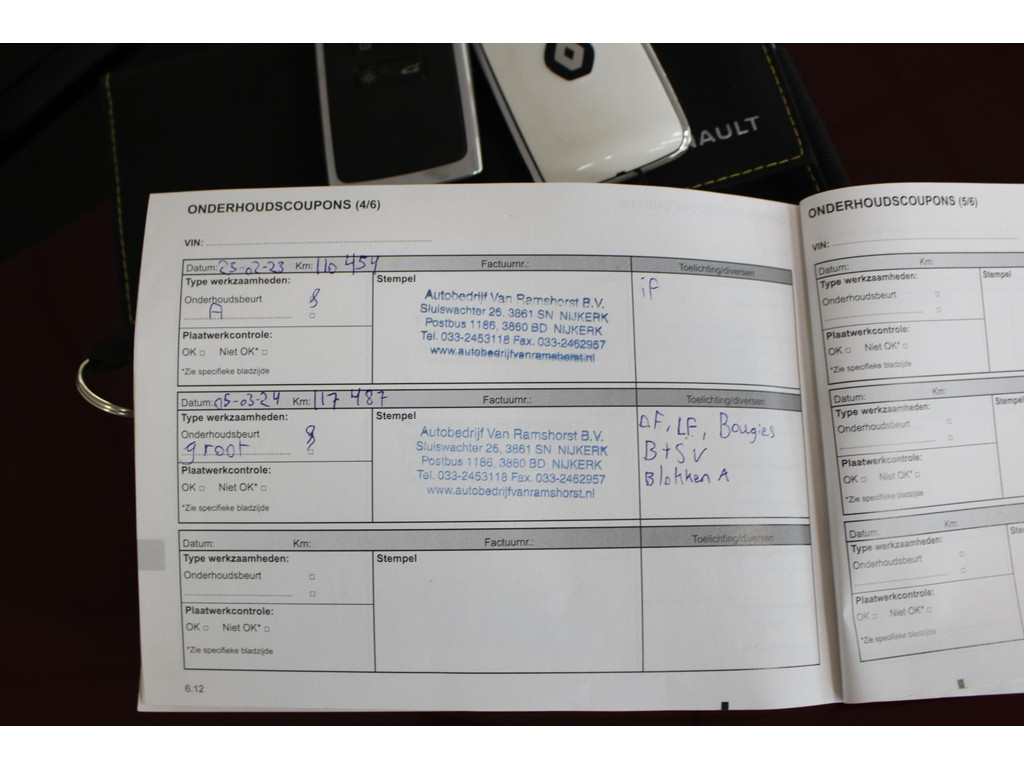 NAULT
ONDERHOUDSCOUPONS (4/6)
VIN:
Datum: 25-02-23 Km: 110 454 Factuurnr.: Toelichting/diversen
Type werkzaamheden: Stempel
Onderhoudsbeurt
A
Plaatwerkcontrole:
OK □ Niet OK* □
*Zie specifieke bladzijde
Autobedrijf Van Ramshorst B.V.
Sluiswachter 26, 3861 SN NIJKERK
Postbus 1186, 3860 BD NIJKERK
Tel. 033-2453118 Fax. 033-2462957
www.autobedrijfvanramshorst.nl
if
Datum: 05-03-24 Km: 117 487 Factuurnr.: Toelichting/diversen
Type werkzaamheden: Stempel
Onderhoudsbeurt
groot
Plaatwerkcontrole:
OK □ Niet OK* □
*Zie specifieke bladzijde
Autobedrijf Van Ramshorst B.V.
Sluiswachter 26, 3861 SN NIJKERK
Postbus 1186, 3860 BD NIJKERK
Tel. 033-2453118 Fax. 033-2462957
www.autobedrijfvanramshorst.nl
LF, Bougies
B+SV
Blokken A
Datum: Km: Factuurnr.: Toelichting/diversen
Type werkzaamheden: Stempel
Onderhoudsbeurt □
□
Plaatwerkcontrole:
OK □ Niet OK* □
*Zie specifieke bladzijde
6.12
ONDERHOUDSCOUPONS (5/6)
VIN:
Datum: Km:
Type werkzaamheden: Stempel
Onderhoudsbeurt □
□
Plaatwerkcontrole:
OK □ Niet OK* □
*Zie specifieke bladzijde
Datum: Km:
Type werkzaamheden: Stempe
Onderhoudsbeurt □
□
Plaatwerkcontrole:
OK □ Niet OK* □
*Zie specifieke bladzijde
Datum: Km:
Type werkzaamheden: Ste
Onderhoudsbeurt □
□
Plaatwerkcontrole:
OK □ Niet OK* □
*Zie specifieke bladzijde